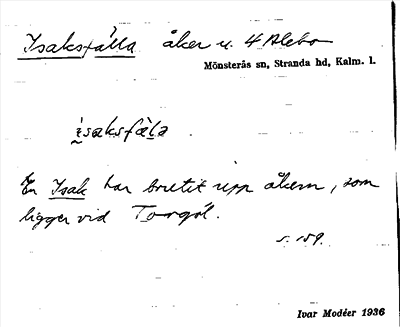 Isaksfälla åker u. 4 Alebo
Mönsterås sn, Stranda hd, Kalm. l.
ìsaksfàla
En Isak har brutit upp åkern, som
ligger vid Torgöl.
s. 159.
Ivar Modéer 1936